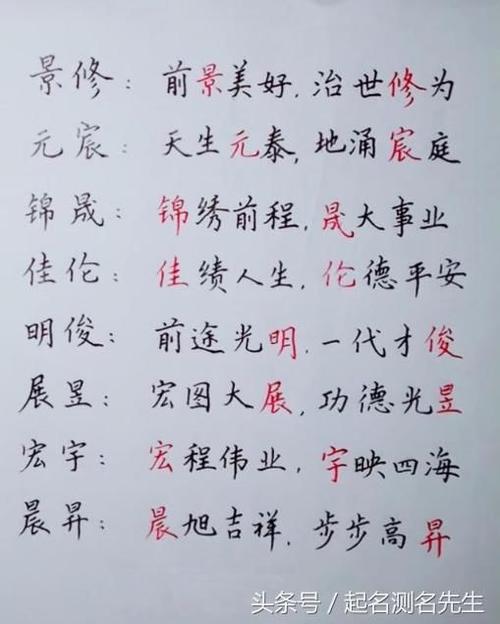 景修：前景美好，治世修为
元宸：天生元泰，地涌宸庭
锦晟：锦绣前程，晟大事业
佳伦：佳绩人生，伦德平安
明俊：前途光明，一代才俊
展昱：宏图大展，功德光昱
宏宇：宏程伟业，宇映四海
晨昇：晨旭吉祥，步步高昇
头条号/起名测名先生